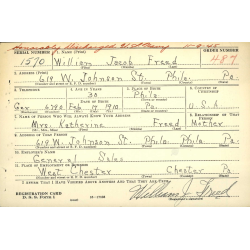 Honorably Discharged U.S. Army 11-9-45
SERIAL NUMBER 1. NAME (Print) ORDER NUMBER
1570 William Jacob Freed 487
2. ADDRESS (Print)
619 W. Johnson St. Phila. Pa.
3. TELEPHONE 4. AGE IN YEARS 5. PLACE OF BIRTH 6. COUNTRY OF
30 Phila
DATE OF BIRTH
Feb 17 1910 Pa. U.S.A
7. NAME OF PERSON WHO WILL ALWAYS KNOW YOUR ADDRESS 8. RELATIONSHIP OF THAT PERSON
Mrs. Katherine Freed Mother
9. ADDRESS OF THAT PERSON
619 W. Johnson St. Phila Pa.
10. EMPLOYER'S NAME
General Sales
11. PLACE OF EMPLOYMENT OR BUSINESS
West Chester Chester Pa
I AFFIRM THAT I HAVE VERIFIED ABOVE ANSWERS AND THAT THEY ARE TRUE.
REGISTRATION CARD
D. S. S. FORM 1
William J. Freed